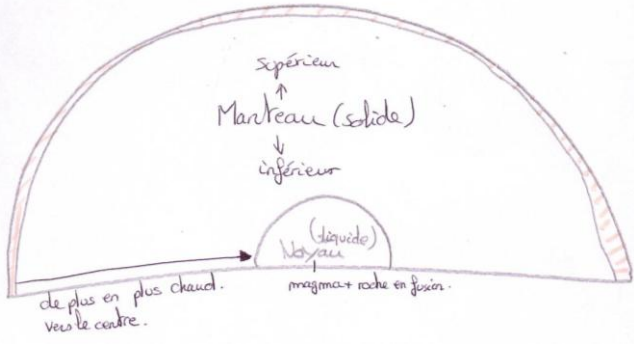 supérieur
Manteau (solide)
inférieur
(liquide)
Noyau
de plus en plus chaud.
vers le centre.
magma + roche en fusion.